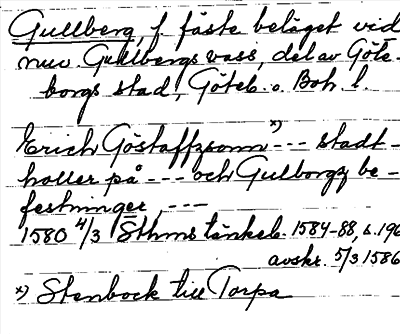 Gullberg, f. fäste beläget vid
nuv. Gullbergs vass, del av Göte-
borgs stad, Göteb. o. Boh. l.
Erich Göstaffzsonn x) --- stadt-
holler på --- och Gulborgz be-
festninger, ---
1580 4/3 Sthms tänkeb. 1584-88, s. 196
avskr. 5/3 1586
x) Stenbock till Torpa